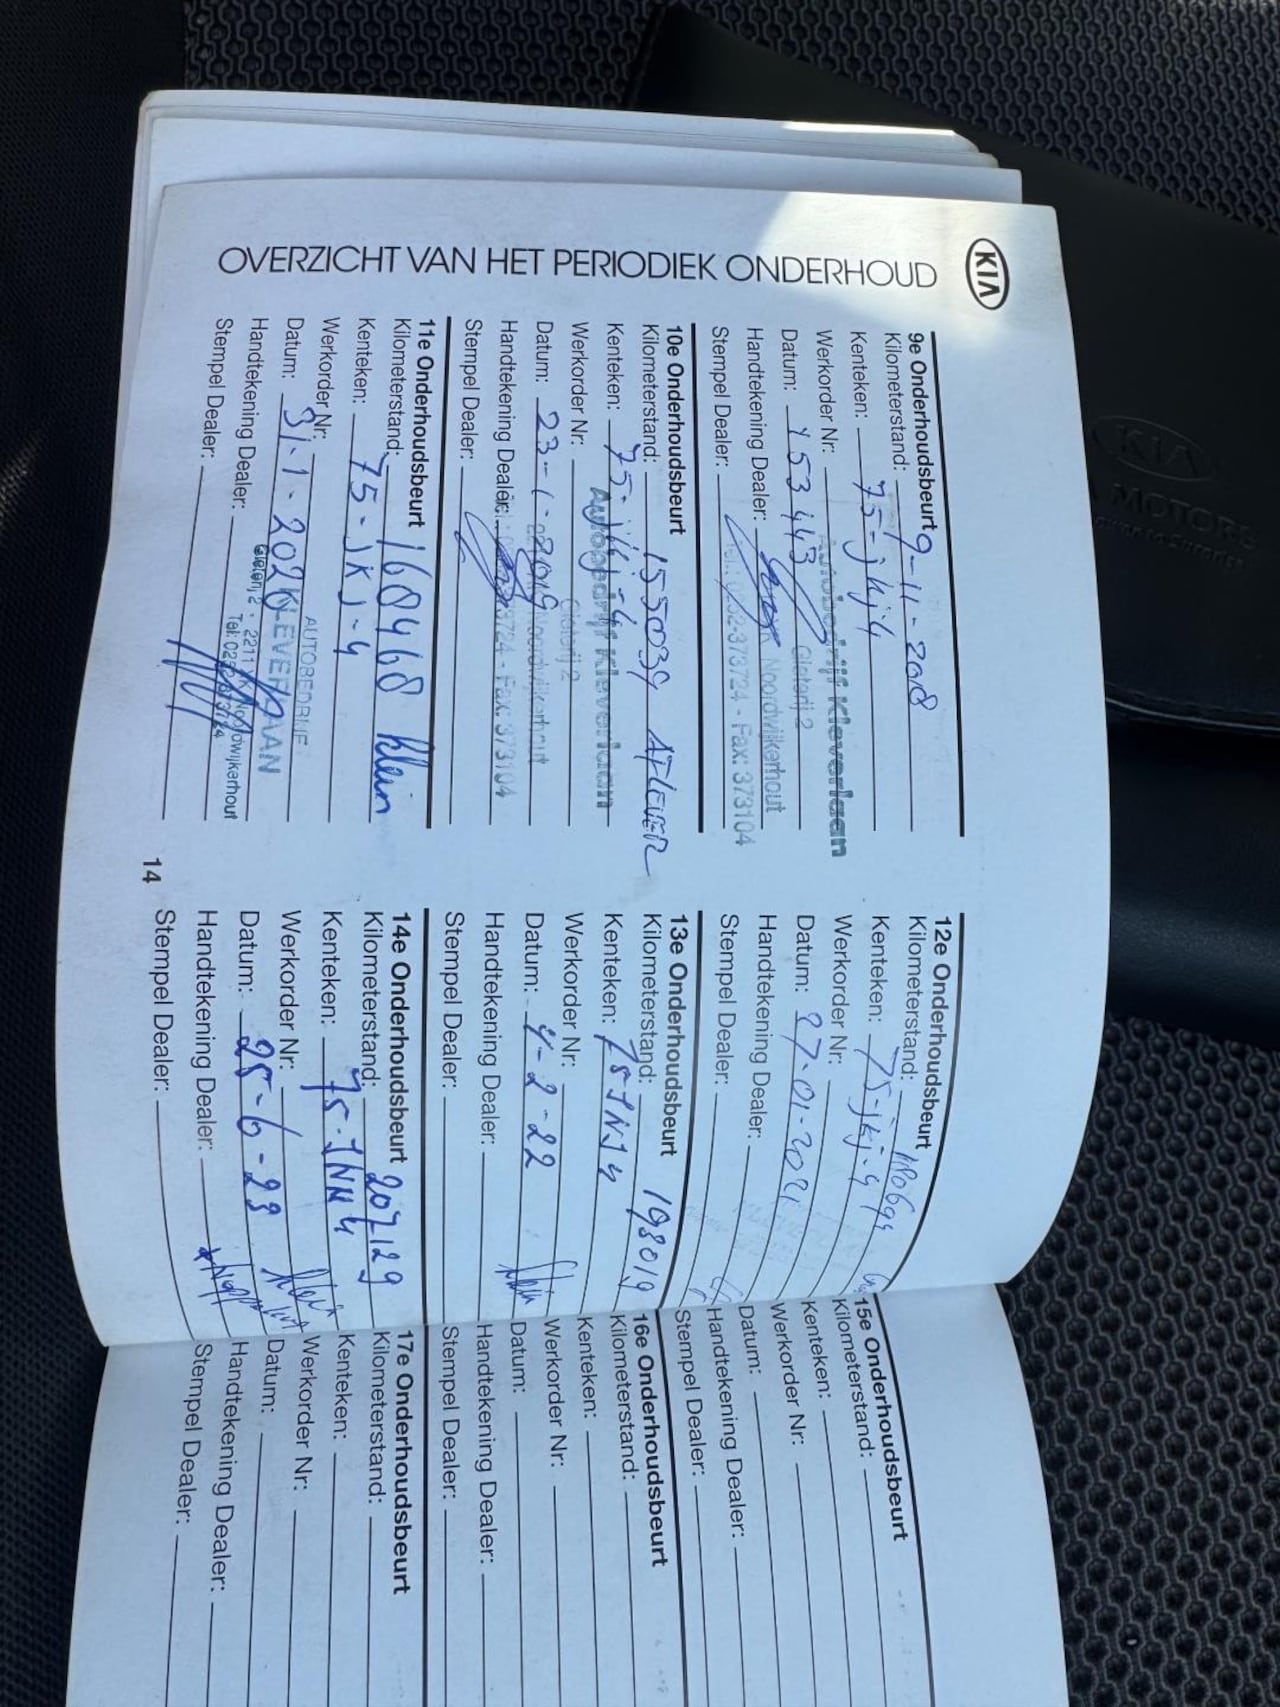 KIA
OVERZICHT VAN HET PERIODIEK ONDERHOUD
9e Onderhoudsbeurt
Kilometerstand: 9-11-2018
Kenteken: 75-jkj-4
Werkorder Nr:
Autobedrijf Kleverlaan
Datum: 153443
Gleterij 2
Handtekening Dealer:
Noordwijkerhout
Stempel Dealer:
Tel.: 0252-373724 - Fax: 373104
10e Onderhoudsbeurt
Kilometerstand: 155039
Kenteken: 75-jkj-4
Autobedrijf Kleverlaan
Werkorder Nr:
Gleterij 2
Datum: 23-1-2019
Noordwijkerhout
Handtekening Dealer:
373724 - Fax: 373104
Stempel Dealer:
11e Onderhoudsbeurt
Kilometerstand: 160468
Kenteken: 75-jkj-4
Werkorder Nr:
AUTOBEDRIJF
Datum: 31-1-2020
KLEVERLAAN
Handtekening Dealer:
Gleterij 2 - 2211 Noordwijkerhout
Stempel Dealer:
Tel: 0252-373724
14
12e Onderhoudsbeurt
Kilometerstand:
Kenteken: 75-jkj-4
Werkorder Nr:
Datum: 27-01-2021
Handtekening Dealer:
Stempel Dealer:
13e Onderhoudsbeurt
Kilometerstand: 198019
Kenteken:
Werkorder Nr:
Datum: 4-2-22
Handtekening Dealer:
Stempel Dealer:
14e Onderhoudsbeurt
Kilometerstand: 207129
Kenteken:
Werkorder Nr:
Datum: 25-6-23
Handtekening Dealer:
Stempel Dealer:
15e Onderhoudsbeurt
Kilometerstand:
Kenteken:
Werkorder Nr:
Datum:
Handtekening Dealer:
Stempel Dealer:
16e Onderhoudsbeurt
Kilometerstand:
Kenteken:
Werkorder Nr:
Datum:
Handtekening Dealer:
Stempel Dealer:
17e Onderhoudsbeurt
Kilometerstand:
Kenteken:
Werkorder Nr:
Datum:
Handtekening Dealer:
Stempel Dealer:
KIA MOTORS